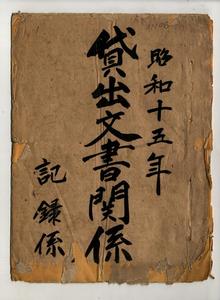 昭和十五年
貸出文書関係
記録係